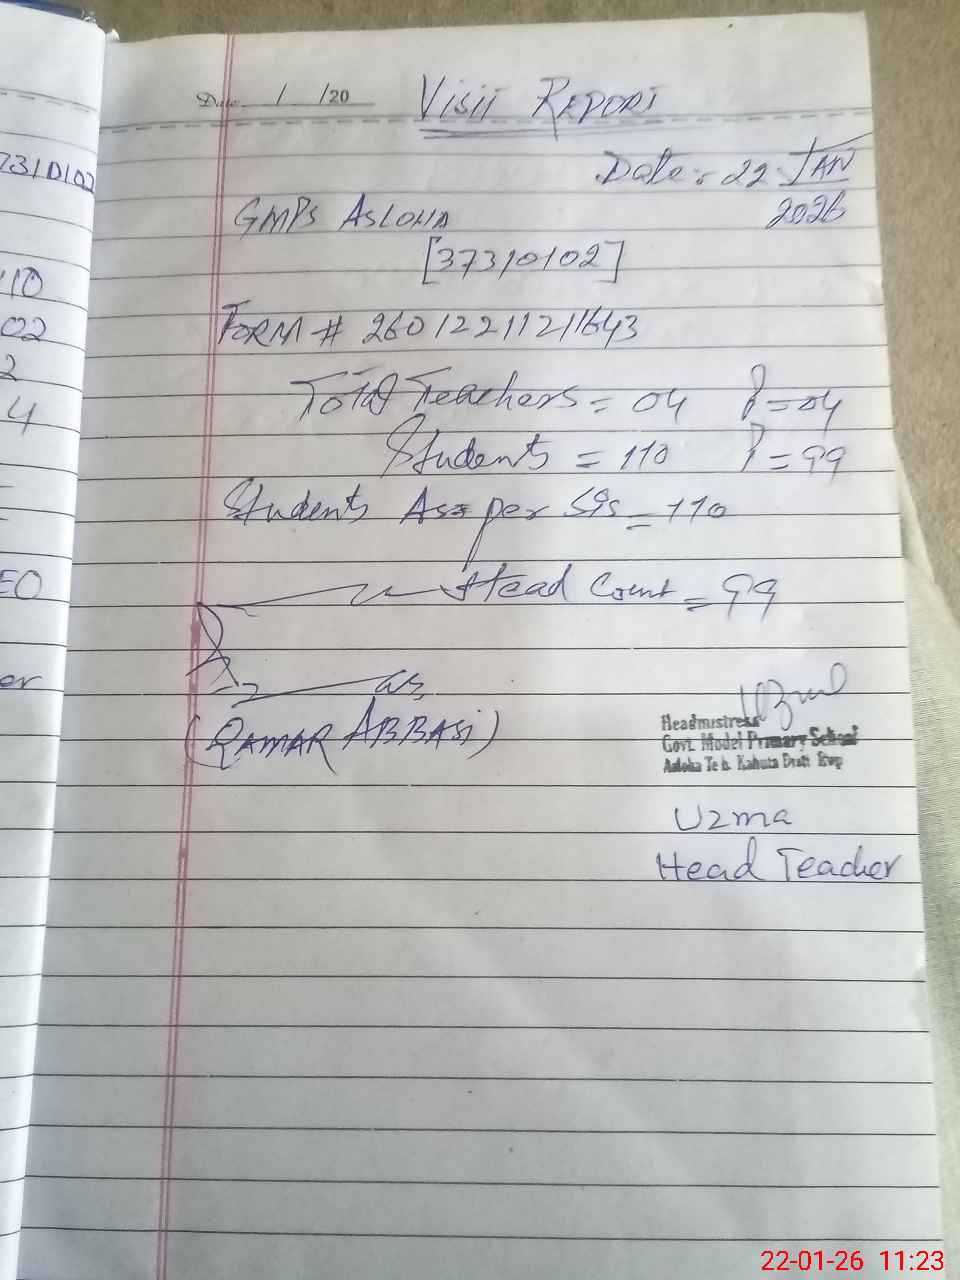 731D102
110
02
2
4
EO
er
Date / /20
Visit Report
Date: 22 JAN
2026
GMPS ASLOHA
[37310102]
FORM # 26012211211643
Total Teachers = 04 P=04
Students = 110 P=99
Students As per SIS = 110
Head Count = 99
(QAMAR ABBASI)
Headmistress
Govt. Model Primary School
Asloha Teh. Kahuta Distt Rwp
Uzma
Head Teacher
22-01-26 11:23